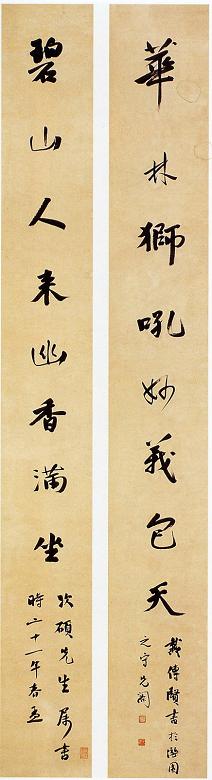 華林獅吼妙義包天
碧山人來幽香滿坐
次碩先生屬書
時二十一年春孟
戴傳賢書於游園
之守先閣